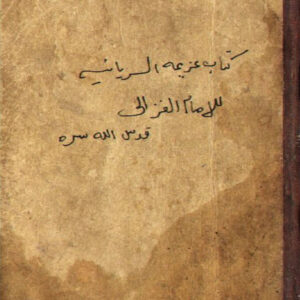 كتاب عزيمه السريانيه
للامام الغزالى
قدس الله سره